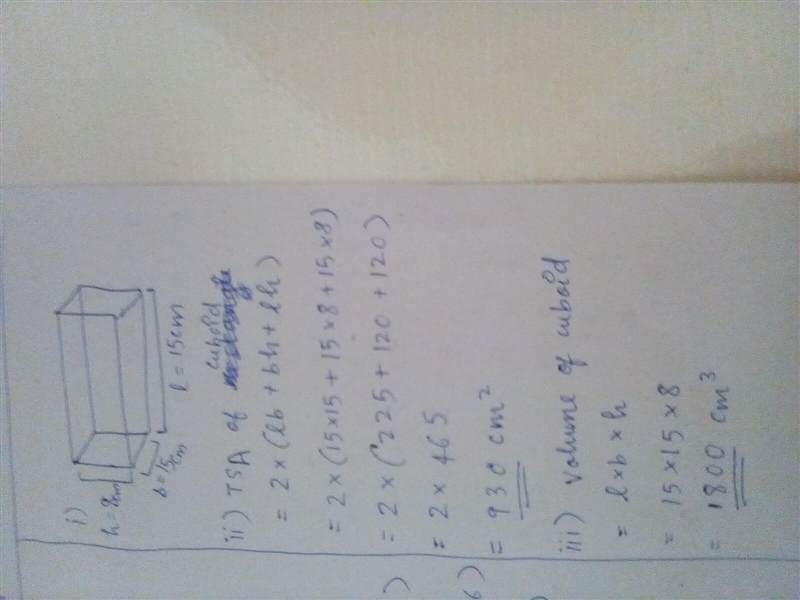 i)
h=8cm
b=15cm
l = 15cm
ii) TSA of cuboid
= 2 x (lb + bh + lh)
= 2 x (15x15 + 15x8 + 15x8)
= 2 x (225 + 120 + 120)
= 2 x 465
= 930 cm²
iii) Volume of cuboid
= l x b x h
= 15 x 15 x 8
= 1800 cm³
)
6)
)